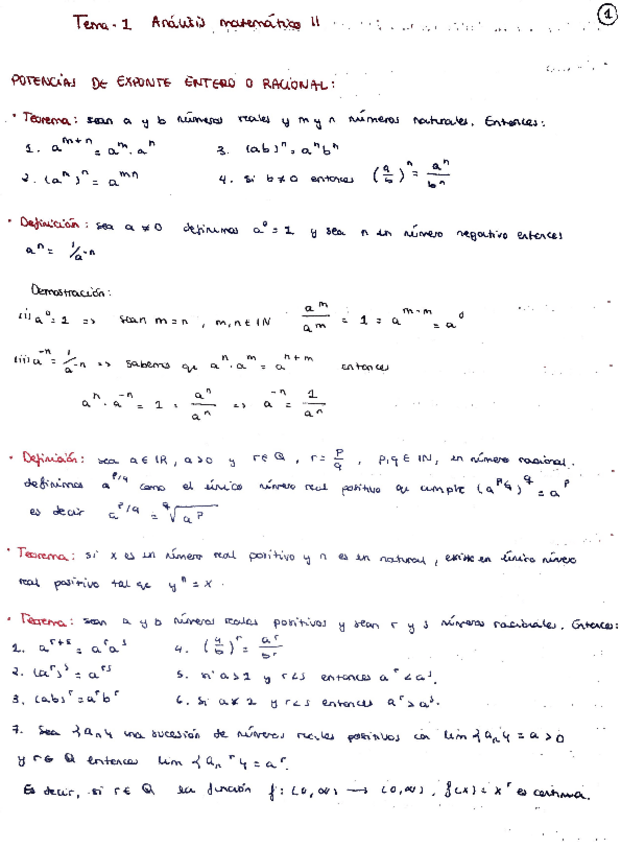 1
Tema-1 Análisis matemático II
POTENCIAS DE EXPONTE ENTERO O RACIONAL:
· Teorema: sean a y b números reales y m y n números naturales. Entonces:
1. a^{m+n} = a^m · a^n 3. (ab)^n = a^n b^n
2. (a^m)^n = a^{mn} 4. si b≠0 entonces (a/b)^n = a^n/b^n
· Definición: sea a≠0 definimos a^0 = 1 y sea n un número negativo entonces
a^n = 1/a^{-n}
Demostración:
(i) a^0 = 1 => sean m=n, m,n ∈ IN a^m/a^m = 1 = a^{m-m} = a^0
(ii) a^{-n} = 1/a^{-n} => sabemos qe a^n · a^m = a^{n+m} entonces
a^n · a^{-n} = 1 = a^n/a^n => a^{-n} = 1/a^n
· Definición: sea a ∈ IR, a>0 y r ∈ Q, r = p/q, p,q ∈ IN, un número racional.
definimos a^{p/q} como el único número real positivo qe cumple (a^{p/q})^q = a^p
es decir a^{p/q} = ^q√a^p
· Teorema: si x es un número real positivo y n es un natural, existe un único número
real positivo tal qe y^n = x.
· Teorema: sean a y b números reales positivos y sean r y s números racionales. Entonces:
1. a^{r+s} = a^r a^s 4. (a/b)^r = a^r/b^r
2. (a^r)^s = a^{rs} 5. si a>1 y r<s entonces a^r < a^s.
3. (ab)^r = a^r b^r 6. Si a< 1 y r<s entonces a^r > a^s.
7. Sea {a_n} una sucesión de números reales positivos con lim {a_n} = a > 0
y r ∈ Q entonces lim {a_n^r} = a^r.
Es decir, si r ∈ Q la función f: (0,∞) → (0,∞), f(x) = x^r es continua.